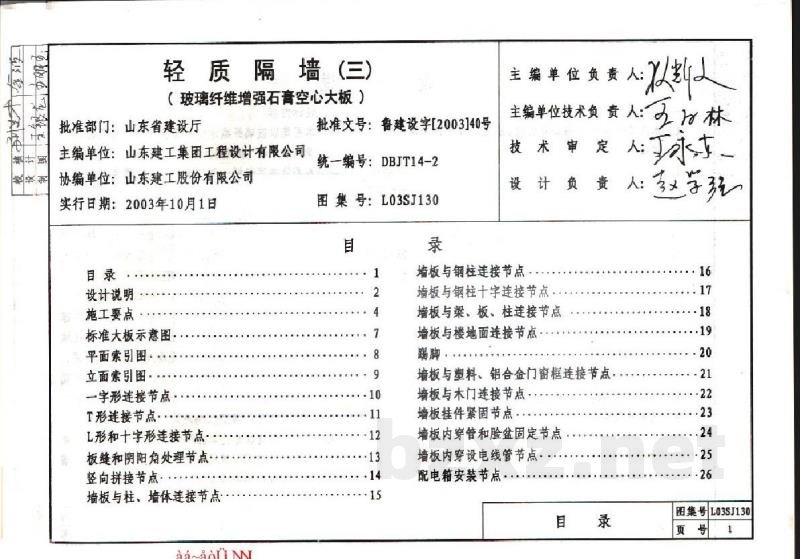 轻质隔墙(三)
(玻璃纤维增强石膏空心大板)
批准部门：山东省建设厅
批准文号：鲁建设字[2003]40号
主编单位：山东建工集团工程设计有限公司
统一编号：DBJT14-2
协编单位：山东建工股份有限公司
实行日期：2003年10月1日
图集号：L03SJ130
主编单位负责人：
主编单位技术负责人：
技术审定人：
设计负责人：
校核
设计
制图
目录
目录 1
设计说明 2
施工要点 4
标准大板示意图 7
平面索引图 8
立面索引图 9
一字形连接节点 10
T形连接节点 11
L形和十字形连接节点 12
板缝和阴阳角处理节点 13
竖向拼接节点 14
墙板与柱、墙体连接节点 15
墙板与钢柱连接节点 16
墙板与钢柱十字连接节点 17
墙板与梁、板、柱连接节点 18
墙板与楼地面连接节点 19
踢脚 20
墙板与塑料、铝合金门窗框连接节点 21
墙板与木门连接节点 22
墙板挂件紧固节点 23
墙板内穿管和脸盆固定节点 24
墙板内穿设电线管节点 25
配电箱安装节点 26
目录
图集号 L03SJ130
页号 1